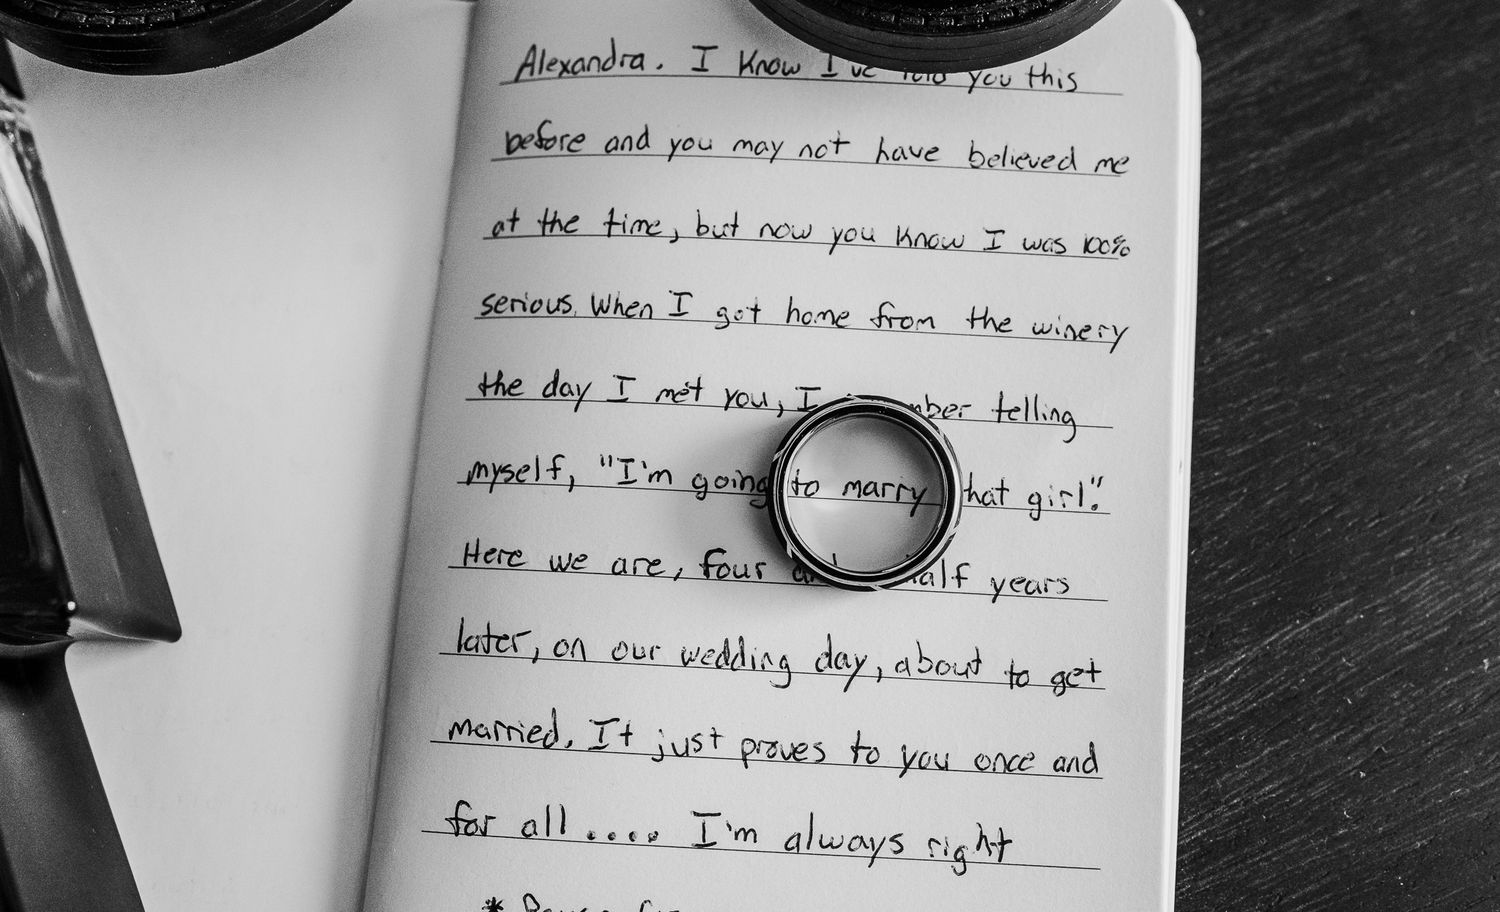 Alexandra. I know I've told you this
before and you may not have believed me
at the time, but now you know I was 100%
serious. When I got home from the winery
the day I met you, I remember telling
myself, "I'm going to marry that girl".
Here we are, four and half years
later, on our wedding day, about to get
married. It just proves to you once and
for all .... I'm always right
*